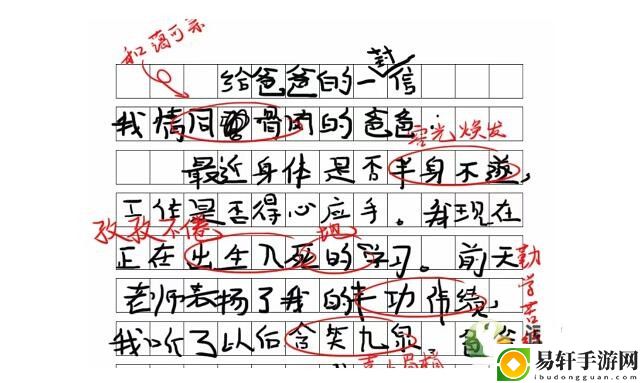 和蔼可亲
给爸爸的一封信
我情同骨肉的爸爸:
容光焕发
最近身体是否半身不遂,
工作是否得心应手。我现在
孜孜不倦 地
正在出生入死的学习。前天
勤学苦
老师表扬了我的丰功伟绩,
我听了以后含笑九泉 爸爸
喜上眉梢
易轩手游网
ibudongbuguo.com